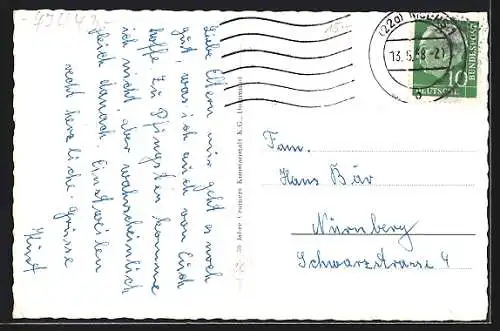 Liebe Eltern mir geht es noch
gut, was ich auch von Euch
hoffe. Zu Pfingsten komme
ich nicht, aber wahrscheinlich
gleich danach. Einstweilen
recht herzliche Grüsse
Kurt
Fam.
Hans Bär
Nürnberg
Schwarzstrasse 4
(22a)
13.5.58-21
10
DEUTSCHE
BUNDESPOST
15.-
Cramers Kunstanstalt K.G., Dortmund